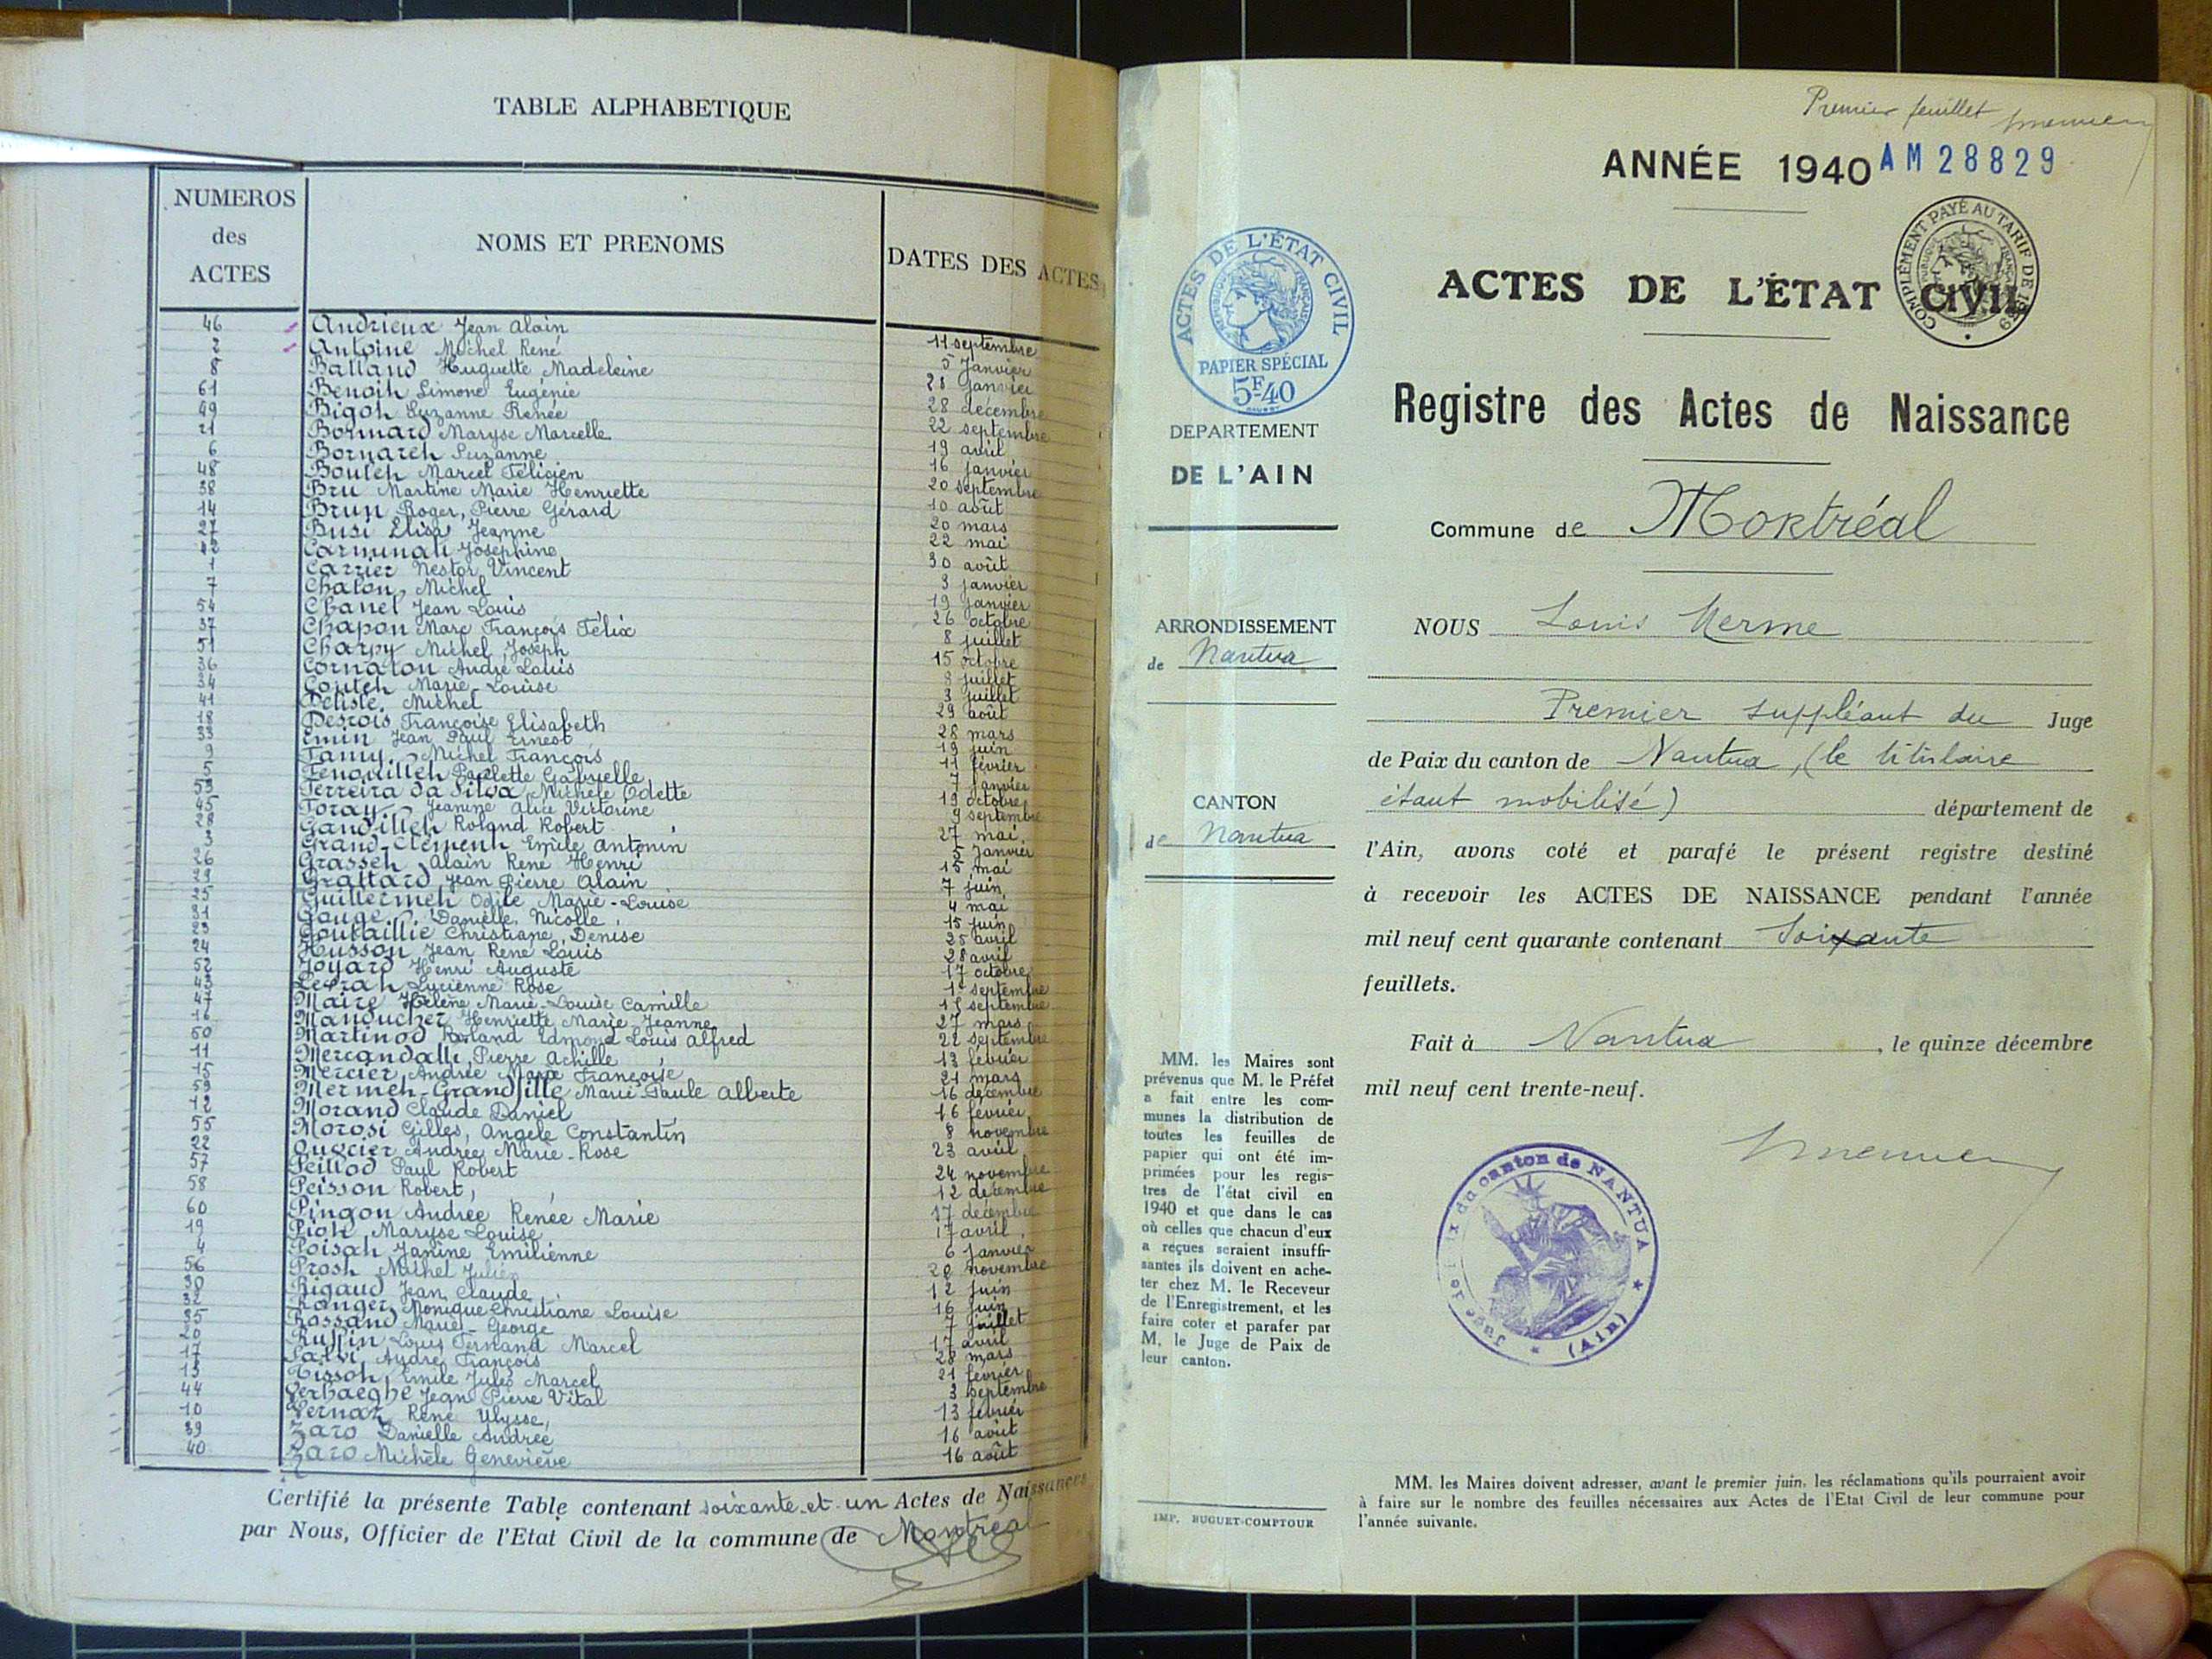 TABLE ALPHABETIQUE
NUMEROS des ACTES NOMS ET PRENOMS DATES DES ACTES
46 Andrieux Jean Alain 11 septembre
2 Antoine Michel René 5 Janvier
8 Balland Huguette Madeleine 28 janvier
61 Benoit Simone Eugénie 28 décembre
49 Bigot Suzanne Renée 22 septembre
21 Bonnard Maryse Marcelle 19 avril
6 Bornaret Suzanne 16 janvier
48 Boutet Marcel Félicien 20 septembre
38 Bru Martine Marie Henriette 10 août
14 Brun Roger, Pierre Gérard 20 mars
27 Busi Elisa Jeanne 22 mai
42 Carminati Joséphine 30 août
1 Carrier Nestor Vincent 3 janvier
7 Chaton, Michel 19 janvier
54 Chanel Jean Louis 26 octobre
37 Chapon Marc François Félix 8 juillet
51 Charpy Michel Joseph 15 octobre
36 Cornaton André Louis 8 juillet
34 Coutet Marie-Louise 3 juillet
41 Déliste Michel 29 août
18 Desrois Françoise Elisabeth 28 mars
33 Emin Jean Paul Ernest 19 juin
9 Famy Michel François 11 février
5 Fenouillet Paulette Gabrielle 7 janvier
53 Ferreira da Silva Michèle Odette 19 octobre
45 Foray Jeanine Alice Victorine 9 septembre
28 Gandillet Roland Robert 27 mai
3 Grand-Clément Emile Antonin 5 Janvier
26 Grasset Alain René Henri 15 mai
29 Grattard Jean Pierre Alain 7 juin
25 Guillermet Odile Marie-Louise 4 mai
31 Gouge Danielle Nicolle 15 juin
23 Goutaillie Christiane, Denise 25 avril
24 Husson Jean René Louis 28 avril
52 Joyard Henri Auguste 17 octobre
43 Levrat Lucienne Rose 1er septembre
47 Maire Hélène Marie-Louise Camille septembre
16 Manducher Henriette Marie Jeanne 27 mars
50 Martinod Roland Edmond Louis Alfred 22 septembre
11 Mercandalli Pierre Achille 13 février
15 Mercier, Andrée Marie Françoise 21 mars
59 Mermet-Grandfille Marie Paule Alberte 16 décembre
12 Morand Claude Daniel 16 février
55 Morosi Gilles, Angele Constantin 8 novembre
22 Andrée Marie-Rose 23 avril
57 Peillod Paul Robert 24 novembre
58 Peisson Robert, 12 décembre
60 Pingon Andrée Renée Marie 17 décembre
19 Piot, Maryse Louise 17 avril
4 Poisat Janine Emilienne 6 janvier
56 Prost Michel Julien 20 novembre
30 Rigaud Jean Claude 12 juin
32 Ranger Monique Christiane Louise 16 juin
35 Rossand Marcel George 7 juillet
20 Ruffin Louis Fernand Marcel 17 avril
17 Salvi André François 28 mars
13 Tissot, Emile Jules Marcel 21 février
44 Verhaeghe Jean Pierre Vital 3 septembre
10 Vernaz René Ulysse, 13 février
39 Zaro Danielle Andrée 16 août
40 Zaro Michèle Geneviève 16 août
Certifié la présente Table contenant soixante et un Actes de Naissances
par Nous, Officier de l'Etat Civil de la commune de Montréal
Premier feuillet
ANNÉE 1940 AM 28829
COMPLÉMENT PAYÉ AU TARIF DE 1939
ACTES DE L'ÉTAT CIVIL
ACTES DE L'ÉTAT CIVIL
RÉPUBLIQUE FRANÇAISE
PAPIER SPÉCIAL
5F40
Registre des Actes de Naissance
DEPARTEMENT
DE L'AIN
Commune de Montréal
ARRONDISSEMENT
de Nantua
NOUS Louis Merme
Premier suppléant du Juge
de Paix du canton de Nantua, (le titulaire
étant mobilisé) département de
CANTON
de Nantua
l'Ain, avons coté et parafé le présent registre destiné
à recevoir les ACTES DE NAISSANCE pendant l'année
mil neuf cent quarante contenant Soixante
feuillets.
Fait à Nantua, le quinze décembre
mil neuf cent trente-neuf.
MM. les Maires sont
prévenus que M. le Préfet
a fait entre les com-
munes la distribution de
toutes les feuilles de
papier qui ont été im-
primées pour les regis-
tres de l'état civil en
1940 et que dans le cas
où celles que chacun d'eux
a reçues seraient insuffi-
santes ils doivent en ache-
ter chez M. le Receveur
de l'Enregistrement, et les
faire coter et parafer par
M. le Juge de Paix de
leur canton.
Juge de Paix du canton de NANTUA
(Ain)
MM. les Maires doivent adresser, avant le premier juin, les réclamations qu'ils pourraient avoir
à faire sur le nombre des feuilles nécessaires aux Actes de l'Etat Civil de leur commune pour
l'année suivante.
IMP. BUGUET-COMPTOUR